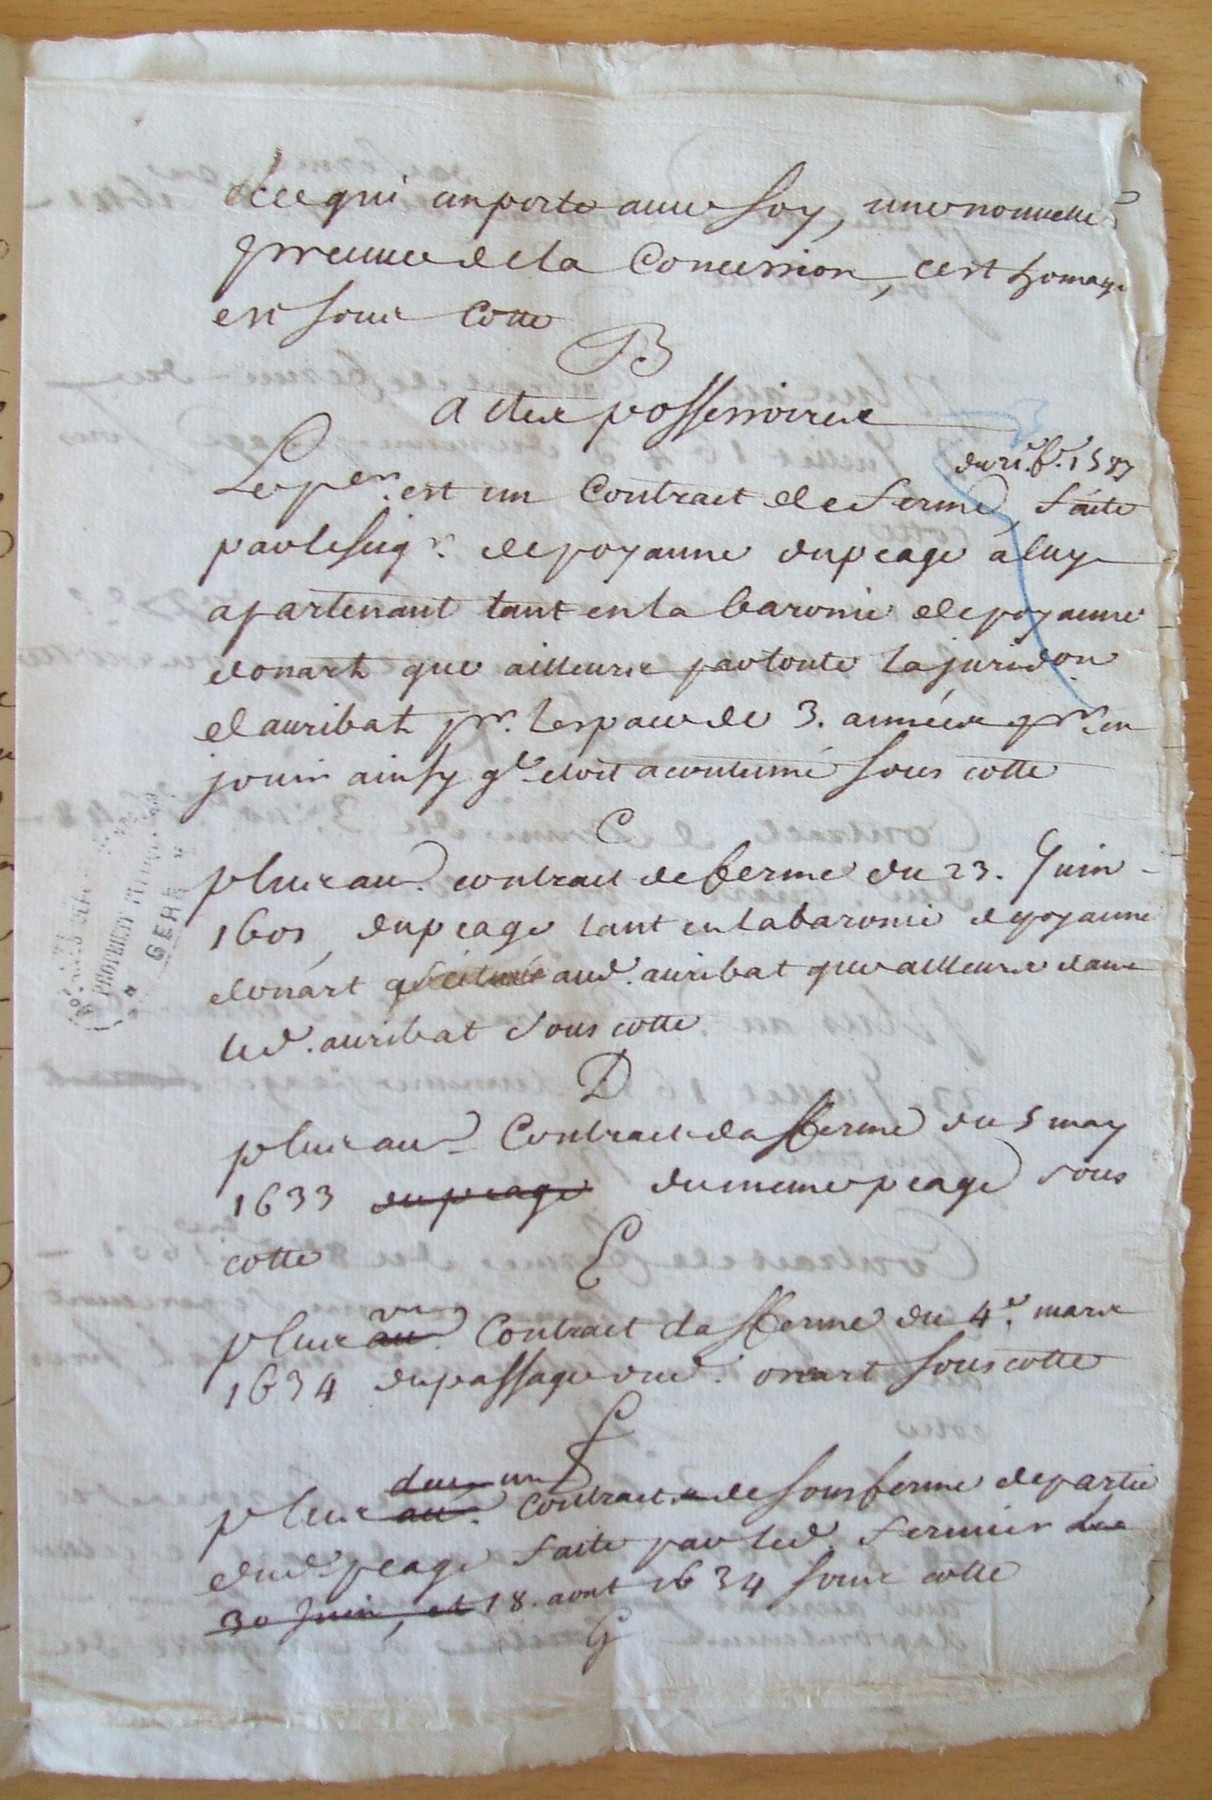 ce qui anporte avec soy, une nouvelle
preuve de la Concession, cest homage
est sous Cotte
B
actes possessoires
Le per. est un Contract de ferme, faite
par le seigr. de poyanne du peage a luy
apartenant tant en la baronie de poyanne
donart que ailleurs par toute la juridon
dauribat pr. lespace de 3. années pr. en
jouir ainsy qe doit acoutumé sous cotte
C
plus au. contract de ferme du 23. Juin
1601 du peage tant en la baronie de poyanne
donart aud. auribat que ailleurs dans
led. auribat sous cotte
D
plus au. Contract da fferme du 5 may
1633 du peage du meme peage sous
cotte E
vn
plus au. Contract da fferme du 4e. mars
1634 du passage dud. onart sous cotte
F
deux un
plus au. contract de sousferme de partie
dud peage faite par led. fermier des
30 Juin, et 18. aout 1634 sous cotte
G
PROPRIETE
GEHE